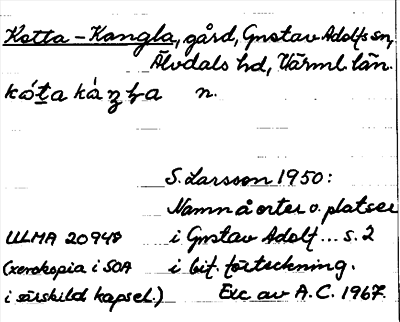 Kotta-Kangla, gård, Gustav Adolfs sn,
Älvdals hd, Värml. län.
n.
S. Larsson 1950:
Namn å orter o. platser
ULMA 20948 i Gustav Adolf... s. 2
(xerokopia i SOA i bif. förteckning.
i särskild kapsel.) Exc av A.C. 1967.